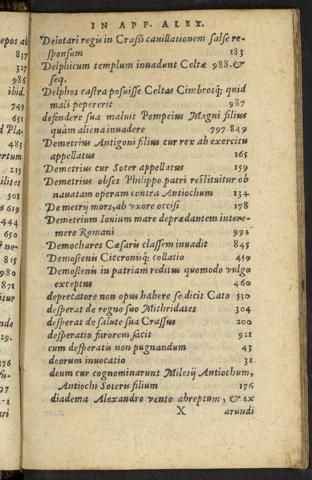 IN APP. ALEX.
Deiotari regis in Crassi cauillationem salse re-
sponsum 183
Delphicum templum inuadunt Celtæ 988. &
seq.
Delphos castra posuisse Celtas Cimbrosq; quid
mali pepererit 987
defendere sua maluit Pompeius Magni filius
quam aliena inuadere 797 849
Demetrius Antigoni filius cur rex ab exercitu
appellatus 165
Demetrius cur Soter appellatus 159
Demetrius obses Philippo patri restituitur ob
nauatam operam contra Antiochum 134
Demetrij mors, ab vxore occisi 178
Demetrium Ionium mare deprædantem intere-
mere Romani 991
Demochares Cæsaris classem inuadit 845
Demostenis Ciceronisq; collatio 459
Demostenis in patriam reditus quomodo vulgo
exceptus 460
deprecatore non opus habere se dicit Cato 510
desperat de regno suo Mithridates 304
desperat de salute sua Crassus 200
desperatio furorem facit 921
cum desperatis non pugnandum 43
deorum inuocatio 31
deum cur cognominarunt Milesij Antiochum,
Antiochi Soteris filium 176
diadema Alexandro vento abreptum, & ex
X arundi
epos ab
837
327
986
ibid.
749
651
d Pla-
481
ertum
215
ilites
501
619
444
650
815
980
871
itur
29.
176